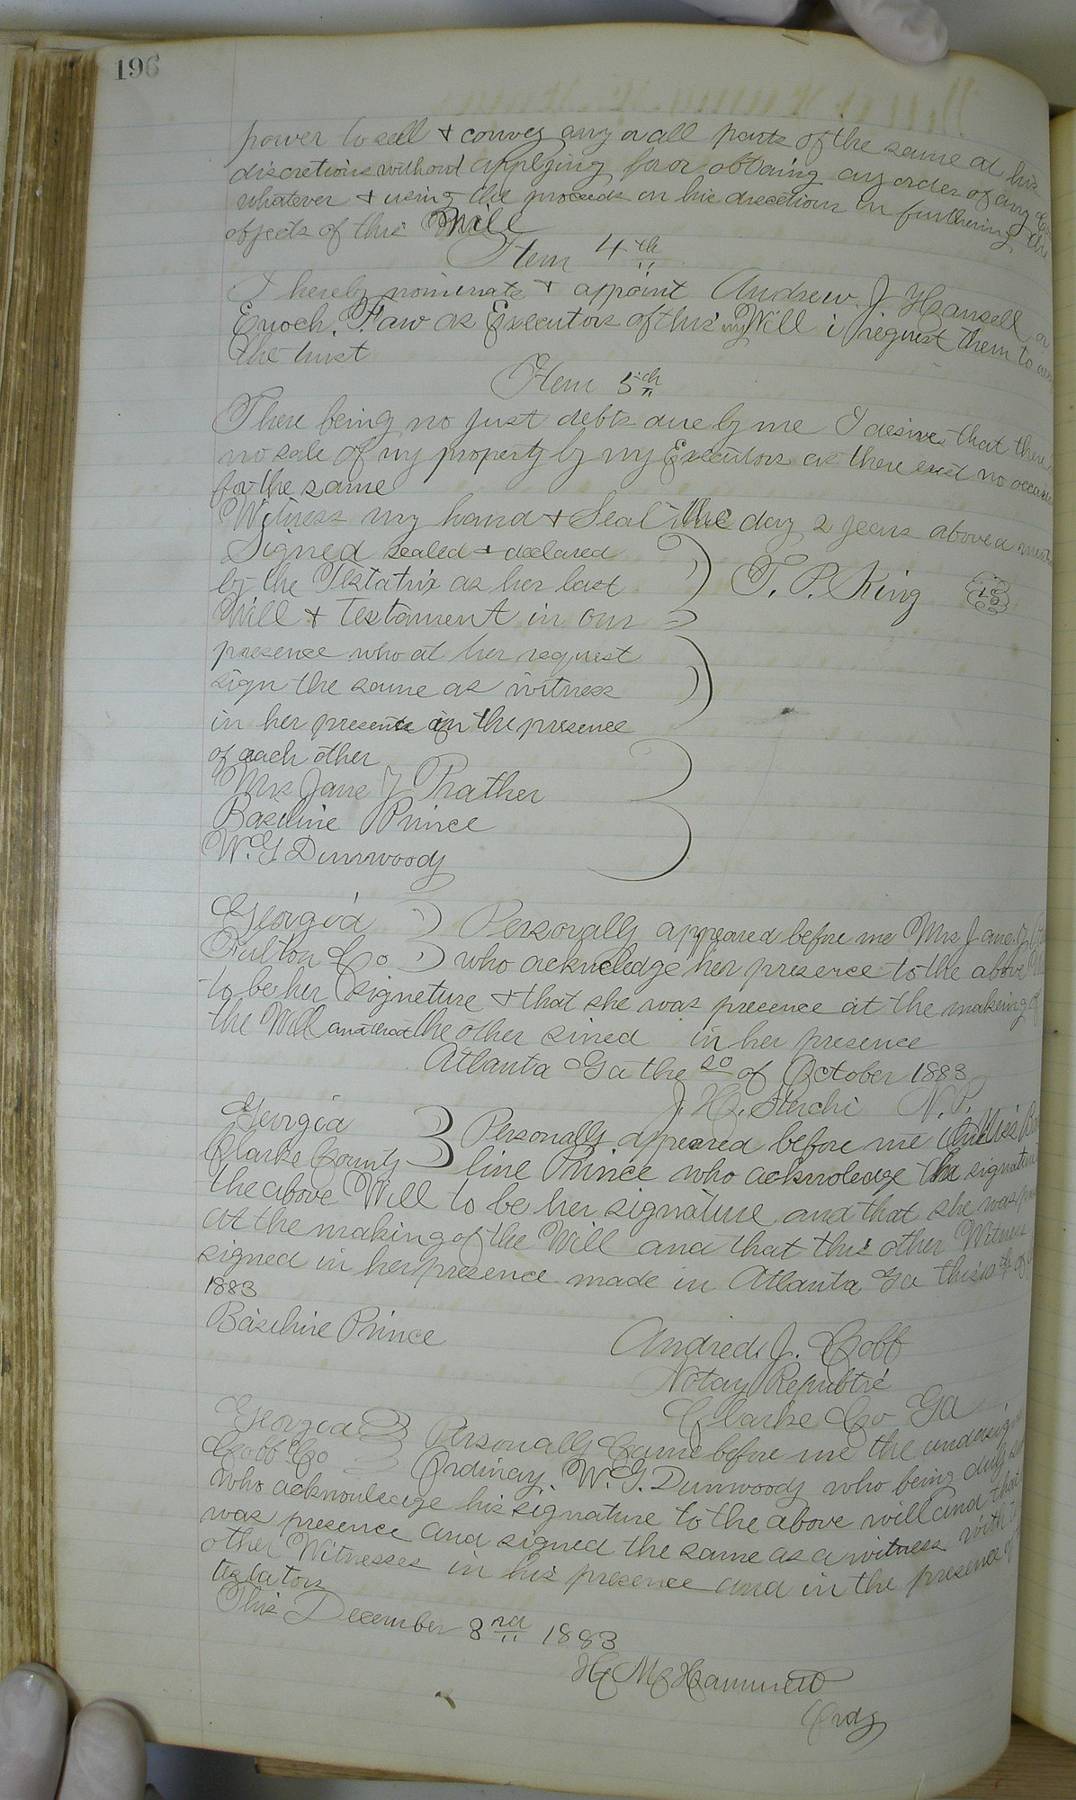 196
power to sell & convey any or all parts of the same at his
discretions without applying for or obtaing any order of any
whatever & using the proceeds in his discretion in furthering the
objects of this Will
Item 4th
I hereby nominate & appoint Andrew. J. Hansell
Enoch. Faw as Executors of this my Will i request them to
the trust
Item 5th
There being no just debts due by me I desire that there
no sale of my property by my Executors as there exist no
for the same
Witness my hand & Seal the day 2 years above
Signed sealed & declared
by the Testatrix as her last
Will & testament in our
presence who at her request
sign the same as witness
in her presence in the presence
of each other
T. P. King
Mrs Jane J Prather
Basiline Prince
W. G Dunwoody
Georgia Personally appeared before me Mrs Jane
Fulton Co who acknoledge her presence to the above
to be her signeture & that she was presence at the makeing
the Will and that the other sined in her presence
Atlanta Ga the 20 of October 1883
N. P.
Georgia Personally appeared before me Miss
Clarke County line Prince who acknoledge the signature
the above Will to be her signature and that she was
at the making of the Will and that this other Witness
signed in her presence made in Atlanta Ga this
1883
Basiline Prince
Andred. J. Cobb
Notay Republic
Clarke Co Ga
Georgia Personally Came before me the
Cobb Co Ordinay. W. G. Dunwoody who being duly
who acknouledge his signature to the above will and that
was presence and signed the same as a witness with
other Witnesses in his presence and in the presence
testators
This December 3rd 1883
H. M. Hammett
Ordy